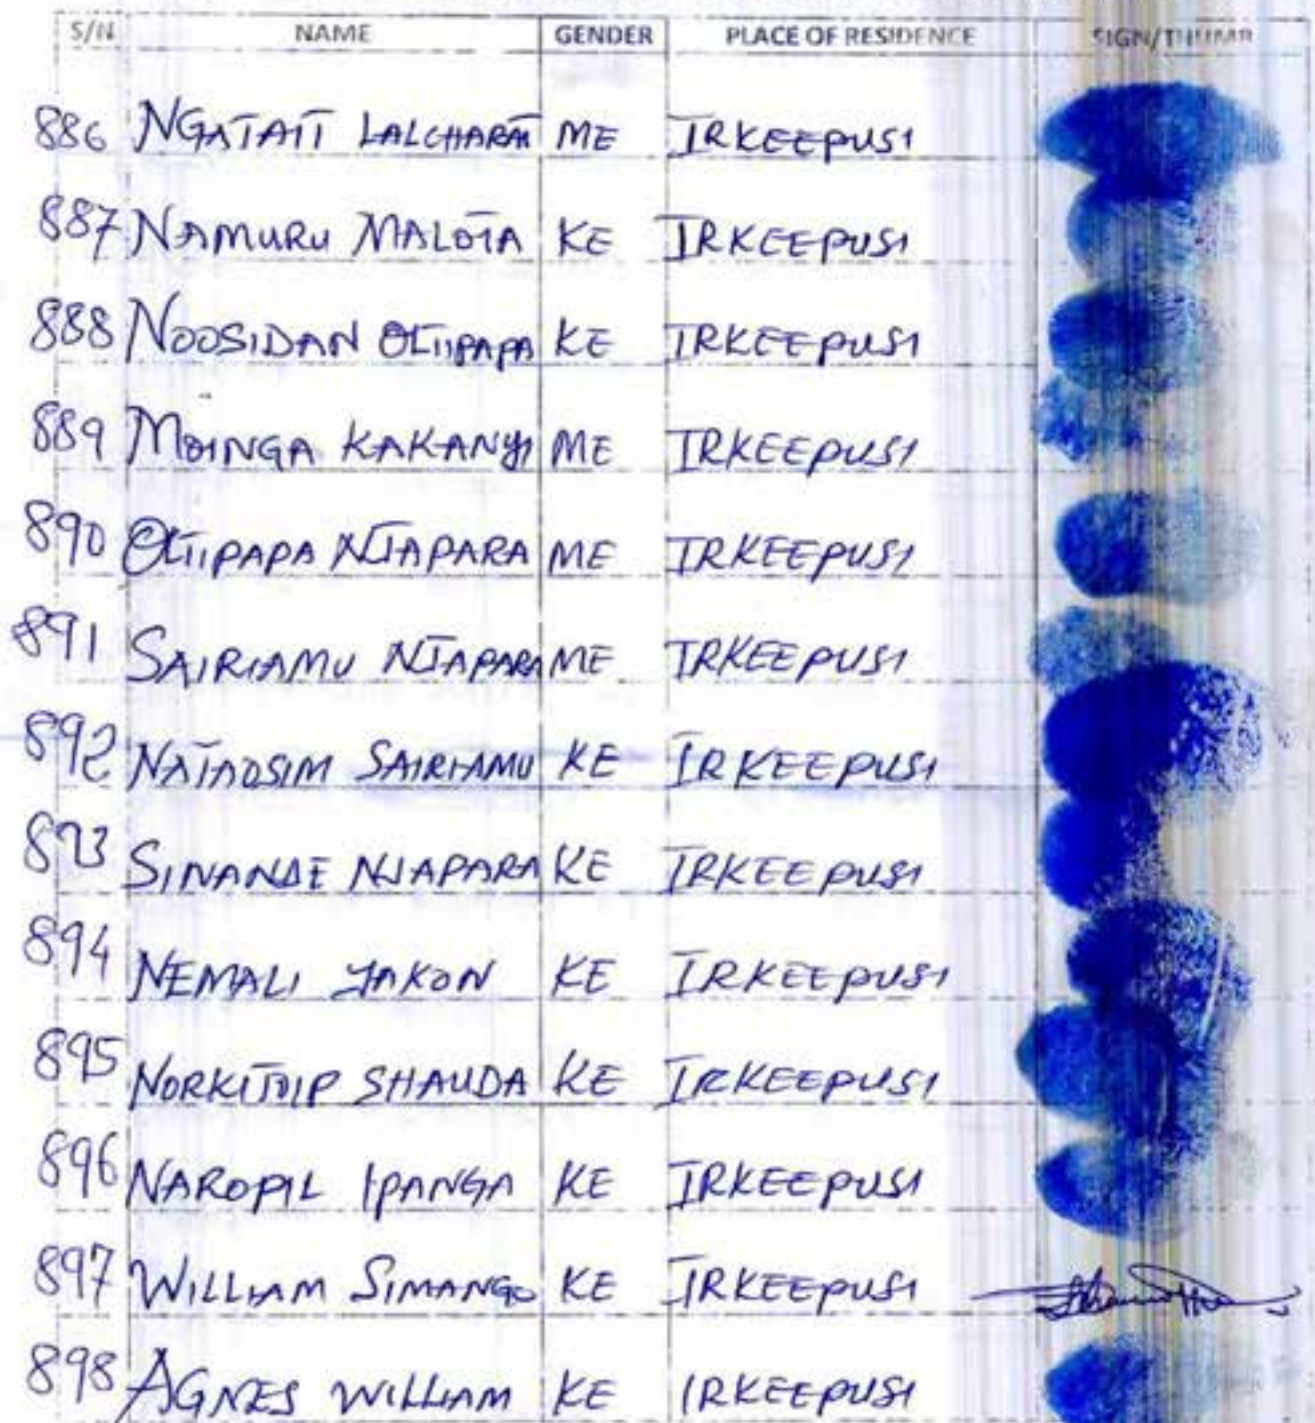 S/N NAME GENDER PLACE OF RESIDENCE SIGN/THUMB
886 NGATAIT LALCHARAI ME IRKEEPUSI
887 NAMURU MALOTA KE IRKEEPUSI
888 NOOSIDAN OLTIPAPA KE IRKEEPUSI
889 MOINGA KAKANYI ME IRKEEPUSI
890 OLTIPAPA NJAPARA ME IRKEEPUSI
891 SAIRIAMU NJAPARA ME IRKEEPUSI
892 NATAOSIM SAIRIAMU KE IRKEEPUSI
893 SINANDE NJAPARA KE IRKEEPUSI
894 NEMALI YAKON KE IRKEEPUSI
895 NORKITOIP SHAUDA KE IRKEEPUSI
896 NAROPIL IPANGA KE IRKEEPUSI
897 WILLIAM SIMANGO KE IRKEEPUSI
898 AGNES WILLIAM KE IRKEEPUSI